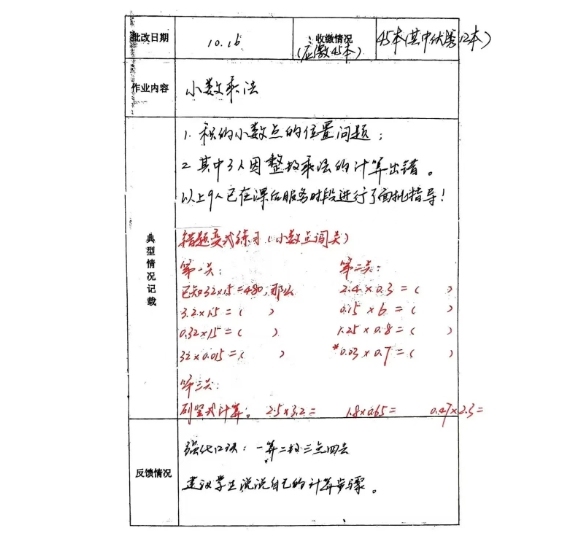 批改日期 10.16 收缴情况 (应缴45本) 45本(其中优秀12本)
作业内容 小数乘法
典型情况记载
1. 积的小数点的位置问题;
2. 其中3人因整数乘法的计算出错。
以上9人已在课后服务时段进行了面批指导!
错题变式练习(小数点闯关)
第一关: 第二关:
已知32×15=480,那么 2.4×0.3=( )
3.2×15=( ) 0.15×6=( )
0.32×15=( ) 1.25×0.8=( )
32×0.015=( ) *0.03×0.7=( )
第三关:
列竖式计算: 2.5×3.2= 1.8×0.65= 0.47×2.3=
反馈情况
强化口诀:一算二数三点四去
建议学生说说自己的计算步骤。